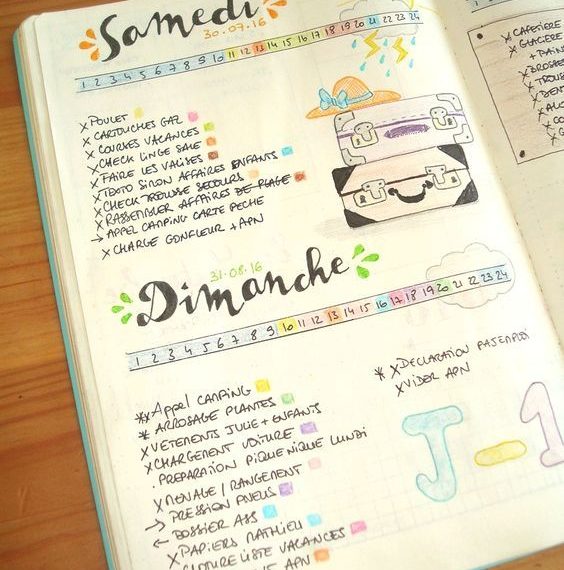 Samedi
30.07.16
1 2 3 4 5 6 7 8 9 10 11 12 13 14 15 16 17 18 19 20 21 22 23 24
x POULET
x CARTOUCHES GAZ
x COURSES VACANCES
x CHECK LINGE SALE
x FAIRE LES VALISES
x TEXTO SIMON AFFAIRES ENFANTS
x CHECK TROUSSE SECOURS
x RASSEMBLER AFFAIRES DE PLAGE
→ APPEL CAMPING CARTE PECHE
x CHARGE GONFLEUR + APN
31.08.16
Dimanche
1 2 3 4 5 6 7 8 9 10 11 12 13 14 15 16 17 18 19 20 21 22 23 24
*x APPEL CAMPING
* ARROSAGE PLANTES
x VETEMENTS JULIE + ENFANTS
x CHARGEMENT VOITURE
PREPARATION PIQUE NIQUE LUNDI
x MENAGE / RANGEMENT
→ PRESSION PNEUS
← DOSSIER ASS
x PAPIERS MATHIEU
CLOTURE LISTE VACANCES
APN
* x DECLARATION PAJEMPLOI
x VIDER APN
J-1
x CAFETIERE
x GLACIERE